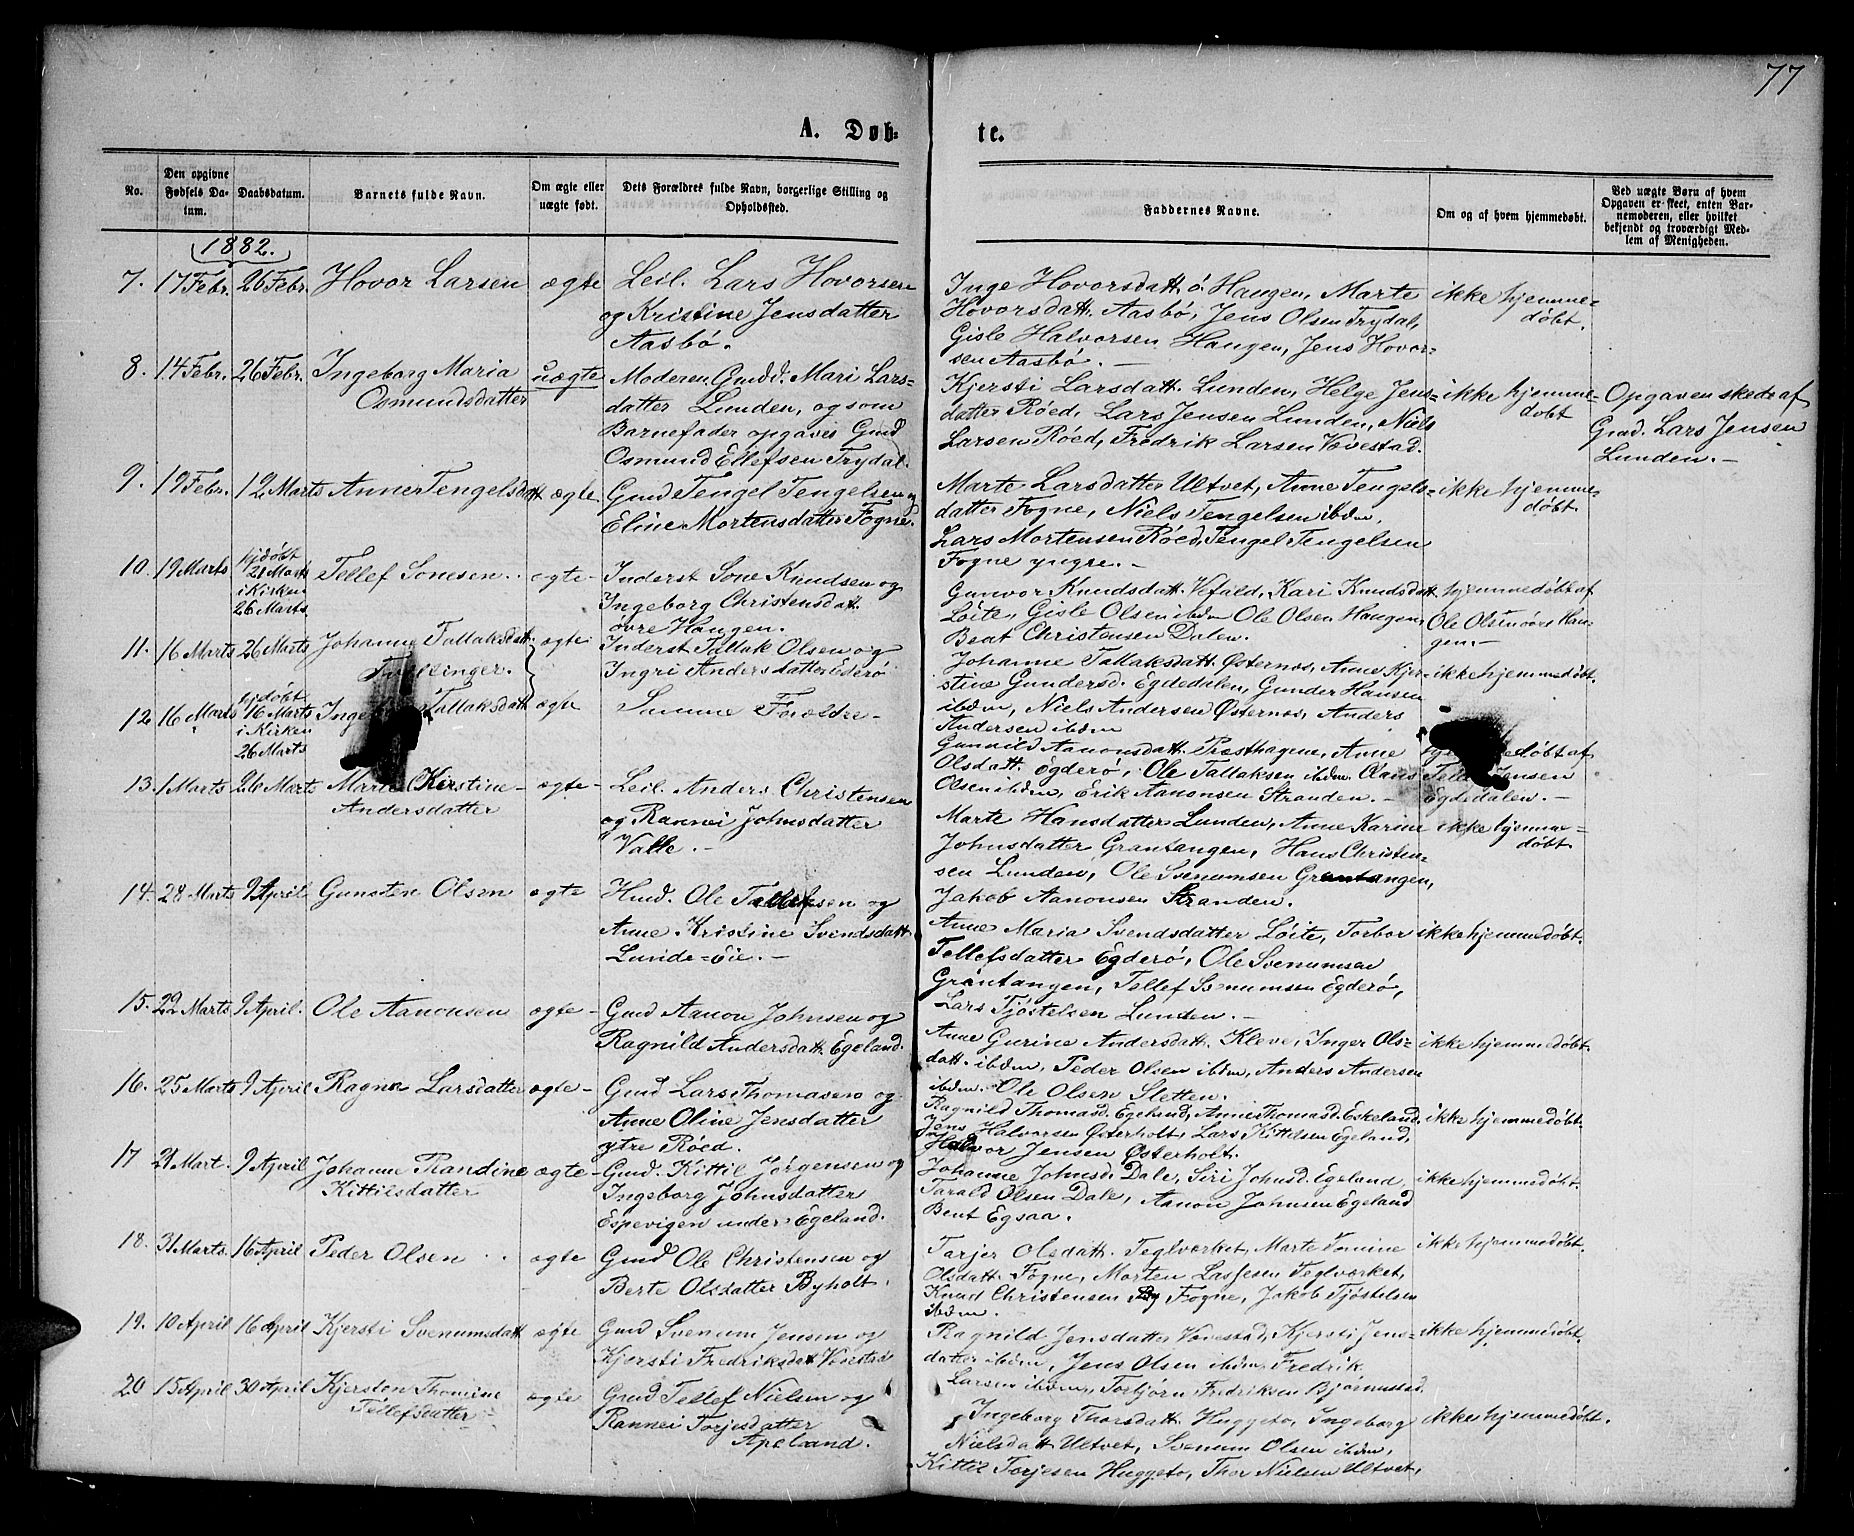 77
A. Døb-
te.
No.
Den opgivne Fødsels Datum.
Daabsdatum.
Barnets fulde Navn.
Om ægte eller uægte født.
Dets Forældres fulde Navn, borgerlige Stilling og Opholdssted.
Faddernes Navne.
Om og af hvem hjemmedøbt.
Ved uægte Børn af hvem Opgaven er skeet, enten Barnemoderen, eller hvilket bekjendt og troværdigt Medlem af Menigheden.
1882.
7. 17 Febr. 26 Febr. Hovor Larsen ægte Leil. Lars Hovorsen
og Kristine Jensdatter
Aasbø.
Inge Hovorsdatt. Haugen, Marte
Hovorsdatt. Aasbø, Jens Olsen Trydal,
Gisle Halvorsen Haugen, Jens Hovor-
sen Aasbø.
ikke hjemme-
døbt.
8. 14 Febr. 26 Febr. Ingeborg Maria
Osmundsdatter
uægte
Moderen, Gmdd. Mari Lars-
datter Lunden, og som
Barnefader opgaves Gmd
Osmund Ellefsen Trydal.
Kjersti Larsdatt. Lunden, Helge Jens-
datter Røed, Lars Jensen Lunden, Niels
Larsen Røed, Fredrik Larsen Vovestad.
ikke hjemme-
døbt
Opgaven skede af
Gmd. Lars Jensen
Lunden.
9. 19 Febr. 12 Marts Anne Tengelsdatt ægte Gmd Tengel Tengelsen og
Eline Mortensdatter Fogne.
Marte Larsdatter Ultvet, Anne Tengels-
datter Fogne, Niels Tengelsen ibdm,
Lars Mortensen Røed, Tengel Tengelsen
Fogne yngre.
ikke hjemme-
døbt.
10. 19 Marts hjdøbt
21 Marts
i Kirken
26 Marts
Tellef Sonesen ægte Inderst Sone Knudsen og
Ingeborg Christensdatt.
øvre Haugen.
Gunvor Knudsdatt. Vefald, Kari Knudsdatt
Løite, Gisle Olsen ibdm Ole Olsen Haugen,
Bent Christensen Dalen.
hjemmedøbt af
Ole Olsen øvre Hau-
gen.
11. 16 Marts 26 Marts Johanne Tallaksdatt. ægte Inderst Tallak Olsen og
Tvillinger.
Ingri Andersdatter Egderø
Johanne Tallaksdatt. Østernes, Anne Kjer-
stine Gundersd. Egdedalen, Gunder Hansen
ibdm, Niels Andersen Østernes, Anders
Andersen ibdm
ikke hjemmedøbt.
12. 16 Marts hjdøbt
16 Marts
i Kirken
26 Marts
Tallaksdatt ægte Samme Forældre
Gunild Aanonsdatt. Præsthagene, Anne
Olsdatt. Egderø, Ole Tallaksen ibdm Claus
Olsen ibdm, Erik Aanonsen Stranden.
døbt af
Hansen
Egdedalen.
13. 1 Marts 26 Marts Kirstine
Andersdatter
ægte Leil. Anders Christensen
og Rannei Johnsdatter
Valle.
Marte Hansdatter Lunden, Anne Karine
Johnsdatter Grantangen, Hans Christen-
sen Lunden, Ole Svenumsen Grantangen,
Jakob Aanonsen Stranden.
ikke hjemme-
døbt
14. 28 Marts 9 April Gunsten Olsen ægte Hmd. Ole Tallaksen og
Anne Kristine Svendsdatt.
Lunde-Eie.
Anne Maria Svendsdatter Løite, Torbor
Tellefsdatter Egderø, Ole Svenumsen
Grantangen, Tellef Svenumsen Egderø,
Lars Tjøstelsen Lunden.
ikke hjemmedøbt.
15. 22 Marts 9 April. Ole Aanonsen ægte Gmd Aanon Johnsen og
Ragnild Andersdatt. Egeland.
Anne Gurine Andersdatt. Kleve, Inger Ols-
datt. ibdm, Peder Olsen ibdm, Anders Andersen
ibdm. Ole Olsen Sletten.
ikke hjemmedøbt.
16. 25 Marts 9 April Ragna Larsdatter ægte Gmd Lars Thomasen og
Anne Oline Jensdatter
ytre Røed.
Ragnild Thomasd. Egeland, Anne Thomasd. Eskeland
Jens Halvorsen Østerholt, Lars Kittilsen Egeland,
Halvor Jensen Østerholt.
ikke hjemmedøbt.
17 21 Mart. 9 April Johanne Randine
Kittilsdatter
ægte Gmd. Kittil Jørgensen og
Ingeborg Johnsdatter
Espevigen under Egeland.
Johanne Johnsd. Dale, Siri Johnsd. Egeland
Tarald Olsen Dale, Aanon Johnsen Egeland
Bent Egsaa.
ikke hjemmedøbt.
18. 31 Marts 16 April Peder Olsen ægte Gmd Ole Christensen og
Berte Olsdatter Byholt.
Tarjer Olsdatt. Teglværket, Marte Tomine
Olsdatt. Fogne, Morten Lassesen Teglværket,
Knud Christensen Fogne, Jakob Tjøstelsen
ibdm.
ikke hjemmedøbt.
19. 10 April 16 April Kjersti Svenumsdatt. ægte Gmd Svenum Jensen og
Kjersti Fredriksdatt Vovestad
Ragnild Jensdatter Vovestad, Kjersti Jens-
datter ibdm, Jens Olsen ibdm, Fredrik
Larsen ibdm, Torbjørn Fredriksen Bjørnestad.
ikke hjemmedøbt
20 15 April 30 April Kjersten Thomine
Tellefsdatter
ægte Gmd Tellef Nielsen og
Rannei Torjesdatter
Apeland.
Ingeborg Thorsdatt. Huggeto, Ingeborg
Nielsdatt Ultvet, Svenum Olsen ibdm,
Kittil Torjesen Huggeto, Thor Nielsen Ultvet,
ikke hjemmedøbt.